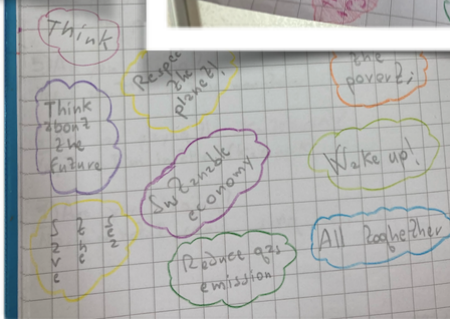 Think
Respec
the
planet!
the
poverti
Think
about
the
future
Sustainable
economy
Wake up!
Save
the
Reduce gas
emission
All toghether